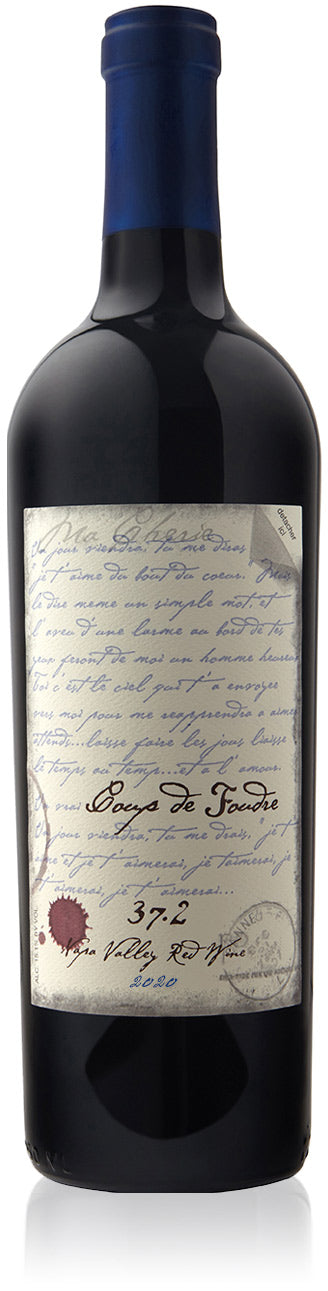 Ma Cherie
détacher
ici
Un jour viendra, tu me diras
"je t'aime du bout du coeur." Mais
le dire meme un simple mot, et
l'aveu d'une larme au bord de tes
yeux feront de moi un homme heureux
Toi c'est le ciel qui t'a envoyee
vers moi pour me reapprendra a aimer
attends...laisse faire les jours liaisse
le temps au temps...et a l'amour.
vrai Coup de Foudre
Un jour viendra, tu me drais, "je t'
aime et je t'aimerai, je t'aimerai, je
t'aimerai, je t'aimerai...
37.2
Napa Valley Red Wine
2020